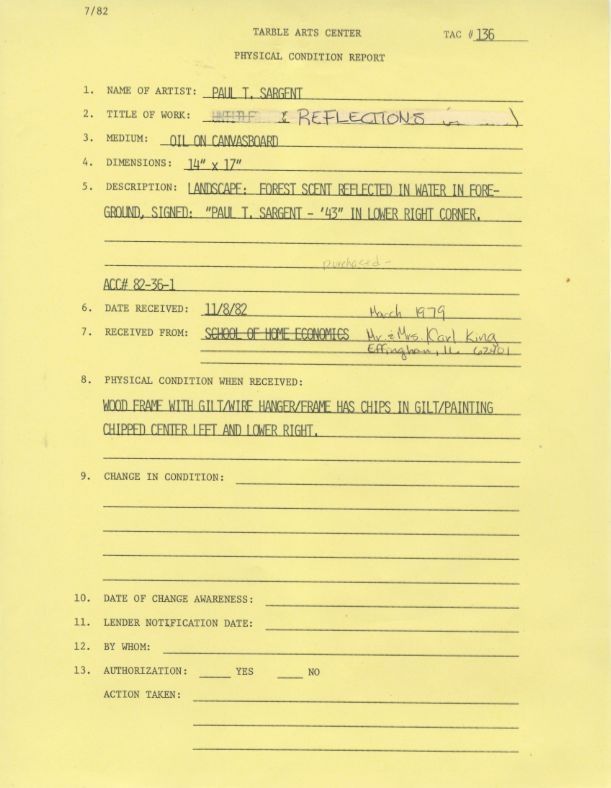 7/82
TARBLE ARTS CENTER TAC # 136
PHYSICAL CONDITION REPORT
1. NAME OF ARTIST: PAUL T. SARGENT
2. TITLE OF WORK: REFLECTIONS
3. MEDIUM: OIL ON CANVASBOARD
4. DIMENSIONS: 14" x 17"
5. DESCRIPTION: LANDSCAPE: FOREST SCENT REFLECTED IN WATER IN FORE-
GROUND, SIGNED: "PAUL T. SARGENT - '43" IN LOWER RIGHT CORNER.
purchased -
ACC# 82-36-1
6. DATE RECEIVED: 11/8/82 March 1979
7. RECEIVED FROM: SCHOOL OF HOME ECONOMICS Mr. & Mrs. Karl King
Effingham, IL 62401
8. PHYSICAL CONDITION WHEN RECEIVED:
WOOD FRAME WITH GILT/WIRE HANGER/FRAME HAS CHIPS IN GILT/PAINTING
CHIPPED CENTER LEFT AND LOWER RIGHT.
9. CHANGE IN CONDITION:
10. DATE OF CHANGE AWARENESS:
11. LENDER NOTIFICATION DATE:
12. BY WHOM:
13. AUTHORIZATION: YES NO
ACTION TAKEN: